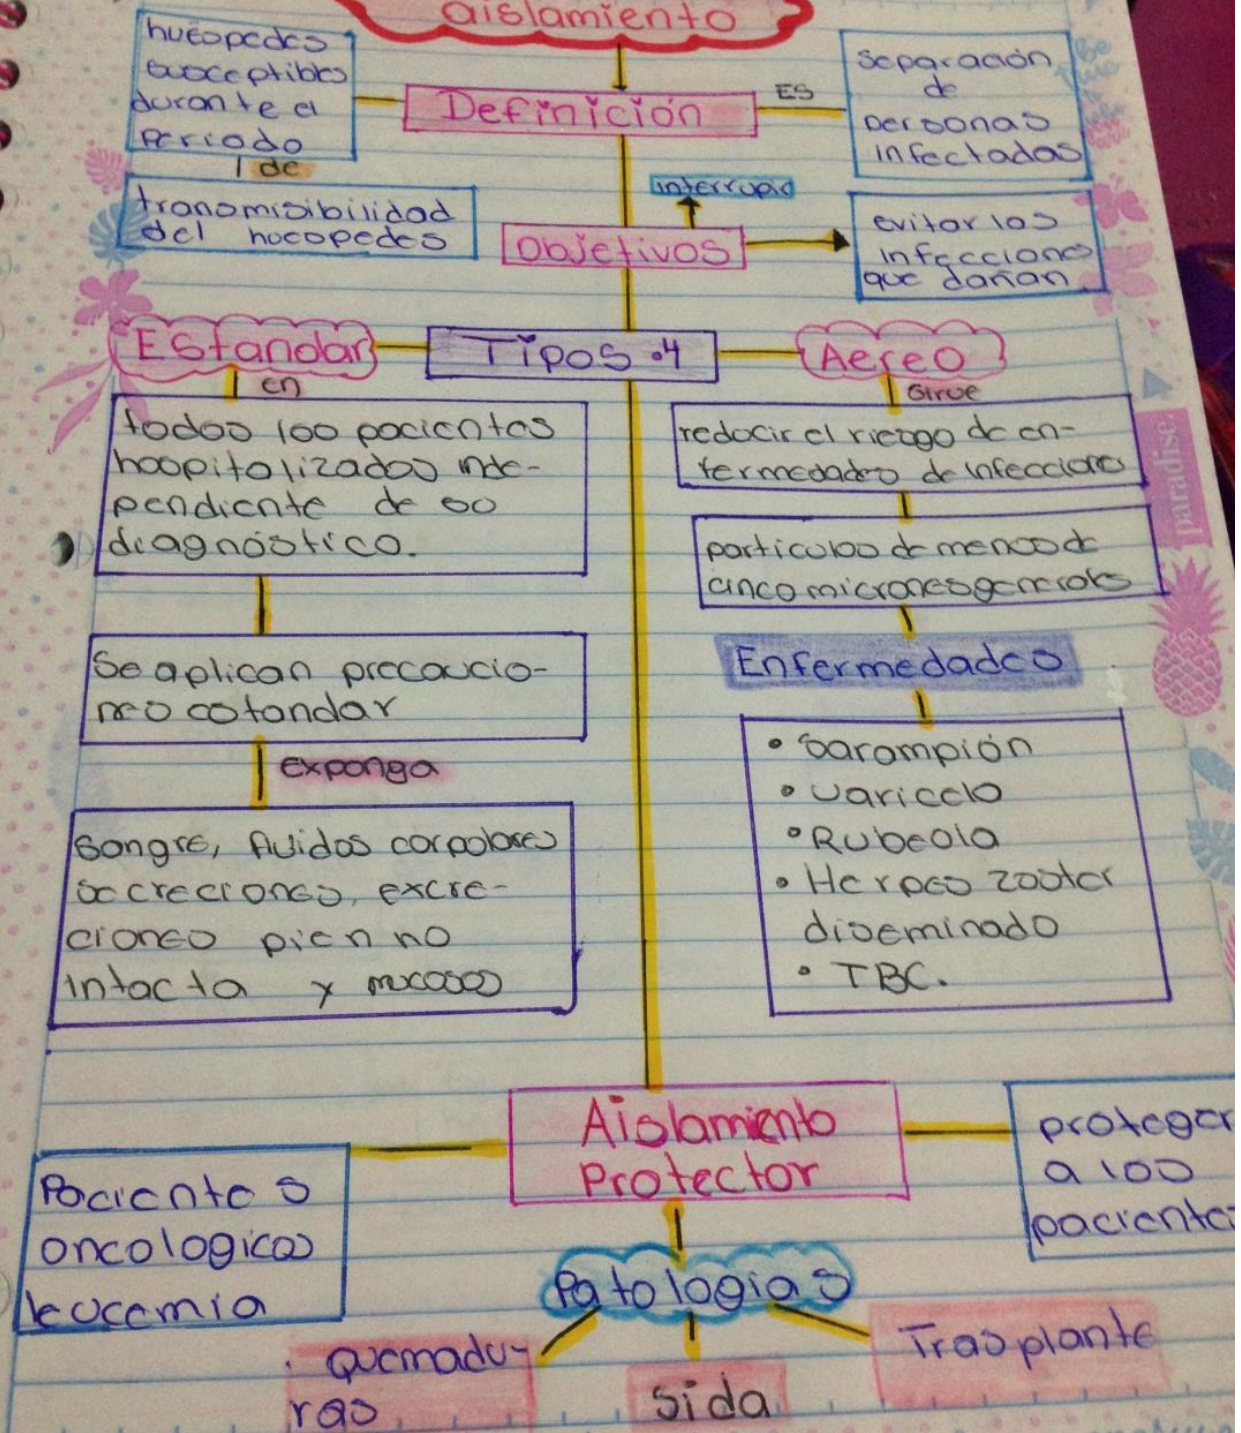 aislamiento
huespedes
susceptibles
durante el
periodo
de
transmisibilidad
del huespedes
Definición
ES
separación
de
personas
infectadas
interrupir
Objetivos
evitar las
infecciones
que dañan
Tipos .4
Estandar
en
todos los pacientes
hospitalizados inde-
pendiente de su
diagnóstico.
Se aplican precaucio-
nes estandar
exponga
Sangre, fluidos corpolares
secreciones, excre-
ciones pien no
intacta y mucosas
Aereo
sirve
redocir el riesgo de en-
fermedades de infecciones
particulas de menos de
cinco micrones generales
Enfermedades
• Sarampión
• varicela
• Rubeola
• Herpes zoster
diseminado
• TBC.
Be
paradise
Aislamiento
Protector
Pacientes
oncologicos
leucemia
proteger
a los
pacientes
Patologias
. Quemadu-
ras
Sida
Trasplante